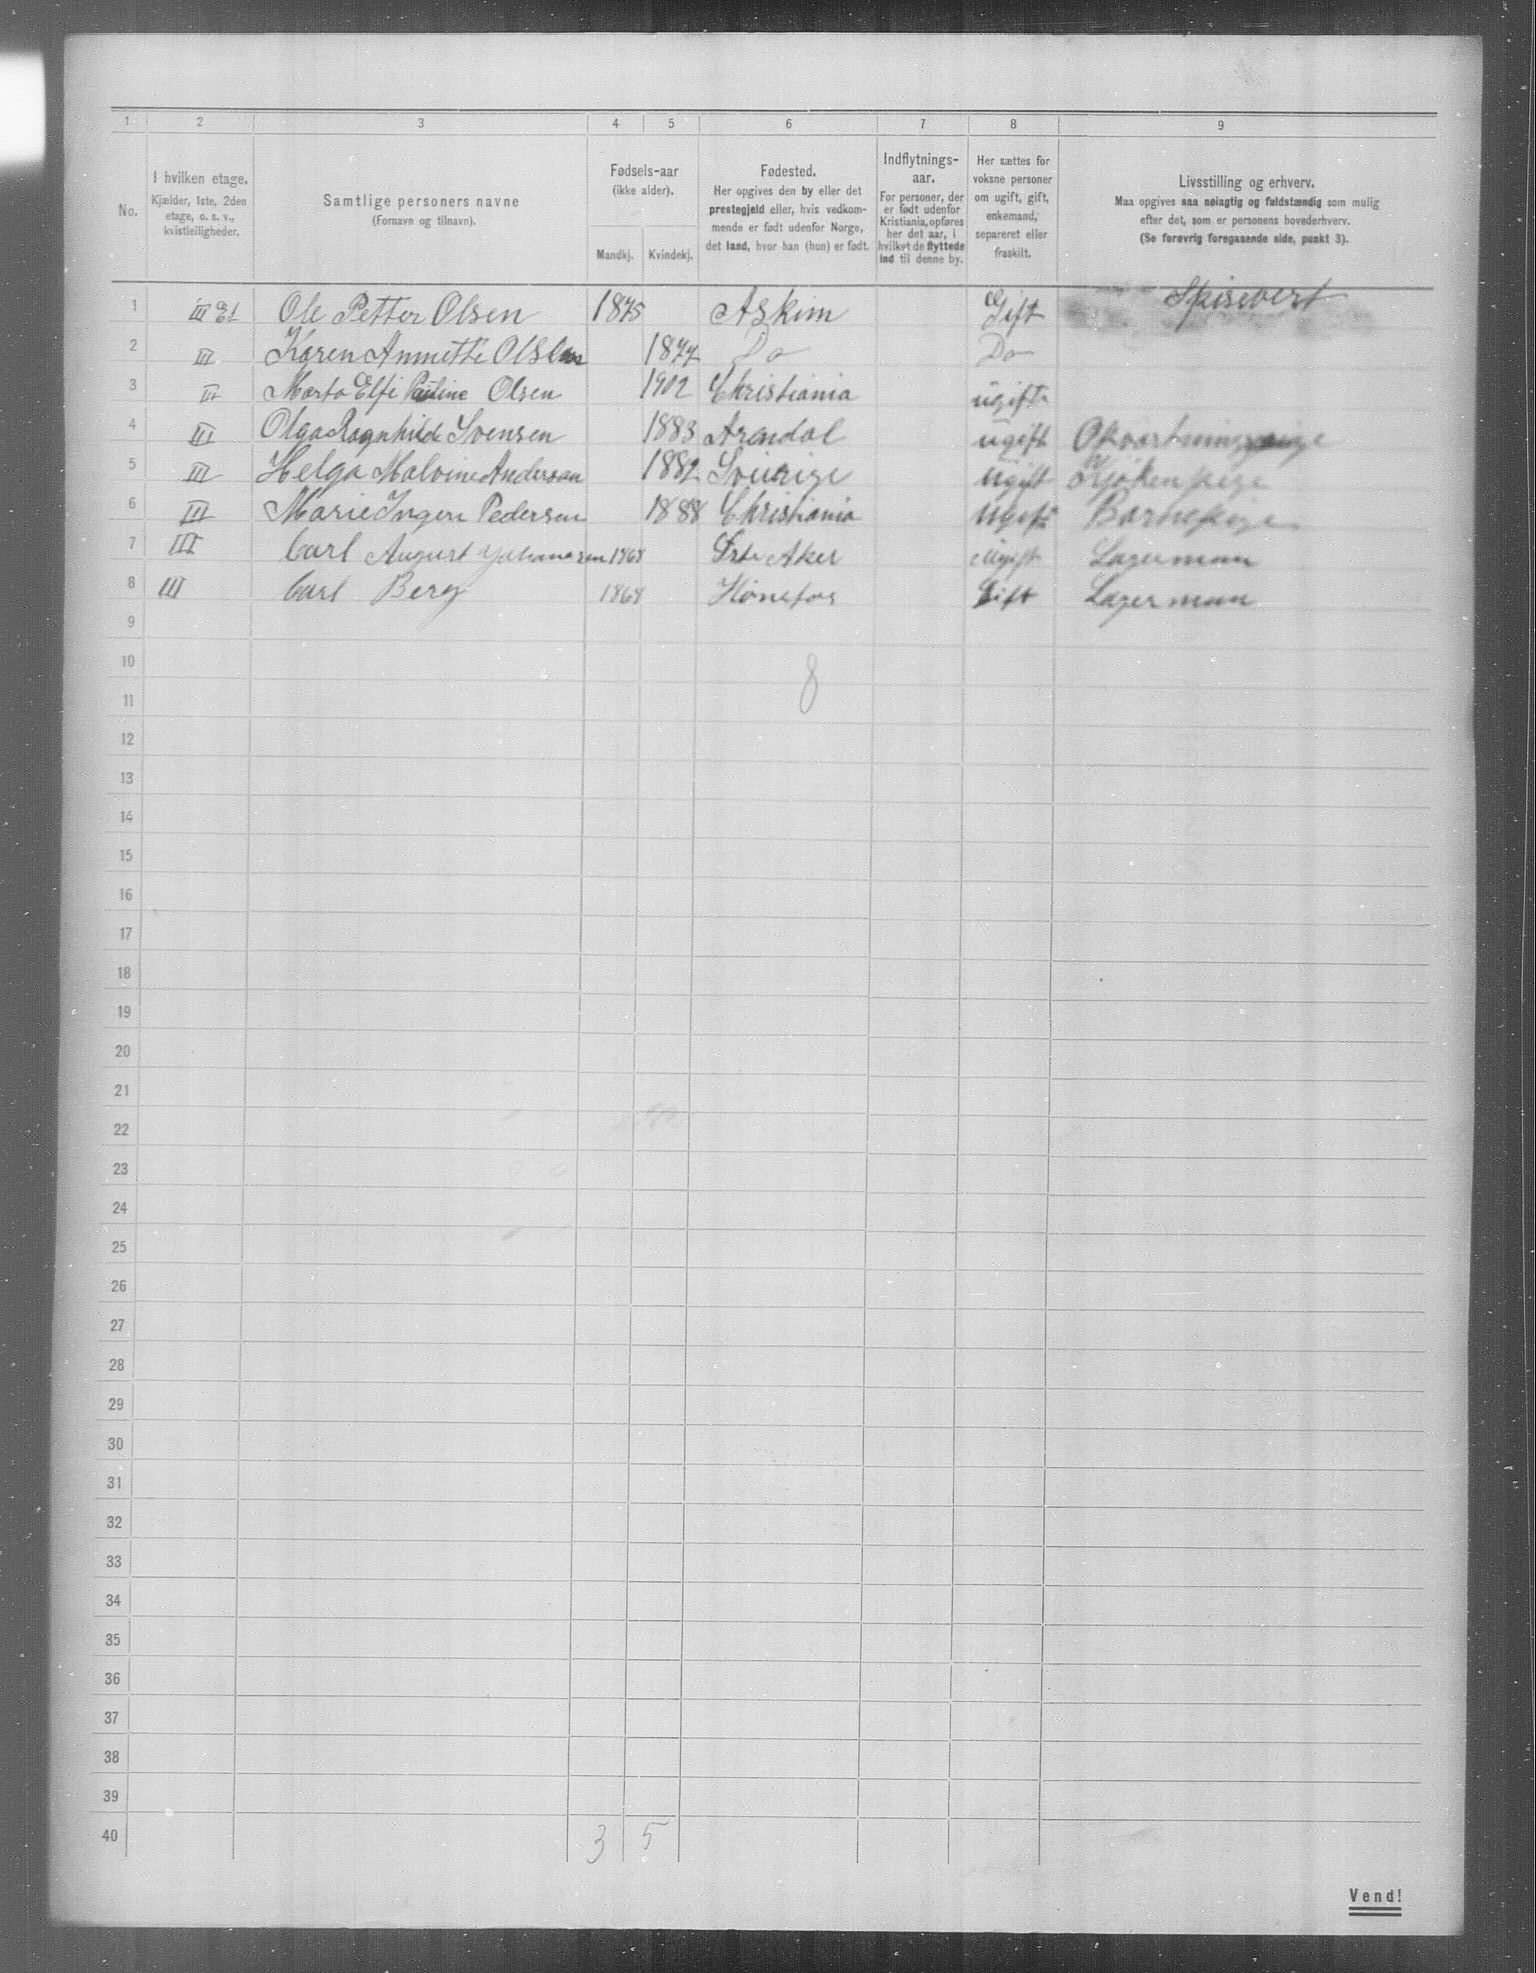 1 2 3 4 5 6 7 8 9
No.
I hvilken etage.
Kjælder, 1ste, 2den
etage, o. s. v.,
kvistleiligheder.
Samtlige personers navne
(Fornavn og tilnavn).
Fødsels-aar
(ikke alder).
Mandkj. Kvindekj.
Fødested.
Her opgives den by eller det
prestegjeld eller, hvis vedkom-
mende er født udenfor Norge,
det land, hvor han (hun) er født.
Indflytnings-
aar.
For personer, der
er født udenfor
Kristiania, opføres
her det aar, i
hvilket de flyttede
ind til denne by.
Her sættes for
voksne personer
om ugift, gift,
enkemand,
separeret eller
fraskilt.
Livsstilling og erhverv.
Maa opgives saa nøiagtig og fuldstændig som mulig
efter det, som er personens hovederhverv.
(Se forøvrig foregaaende side, punkt 3).
1 III Et Ole Petter Olsen 1875 Askim Gift Spisevert
2 III Karen Annette Olsen 1877 Do Do
3 III Marta Elfi Pauline Olsen 1902 Christiania ugift
4 III Olga Ragnhilde Svensen 1883 Arendal ugift
5 III Helga Malvine Anderson 1882 Sverige ugift Kjøkenpige
6 III Marie Ingera Pedersen 1888 Christiania Ugift Barnepige
7 III Carl August Johansen 1868 Aker Ugift Lagerman
8 III Carl Berg 1868 Hønefos Gift Lagerman
9
10
8
11
12
13
14
15
16
17
18
19
20
21
22
23
24
25
26
27
28
29
30
31
32
33
34
35
36
37
38
39
40 3 5
Vend!